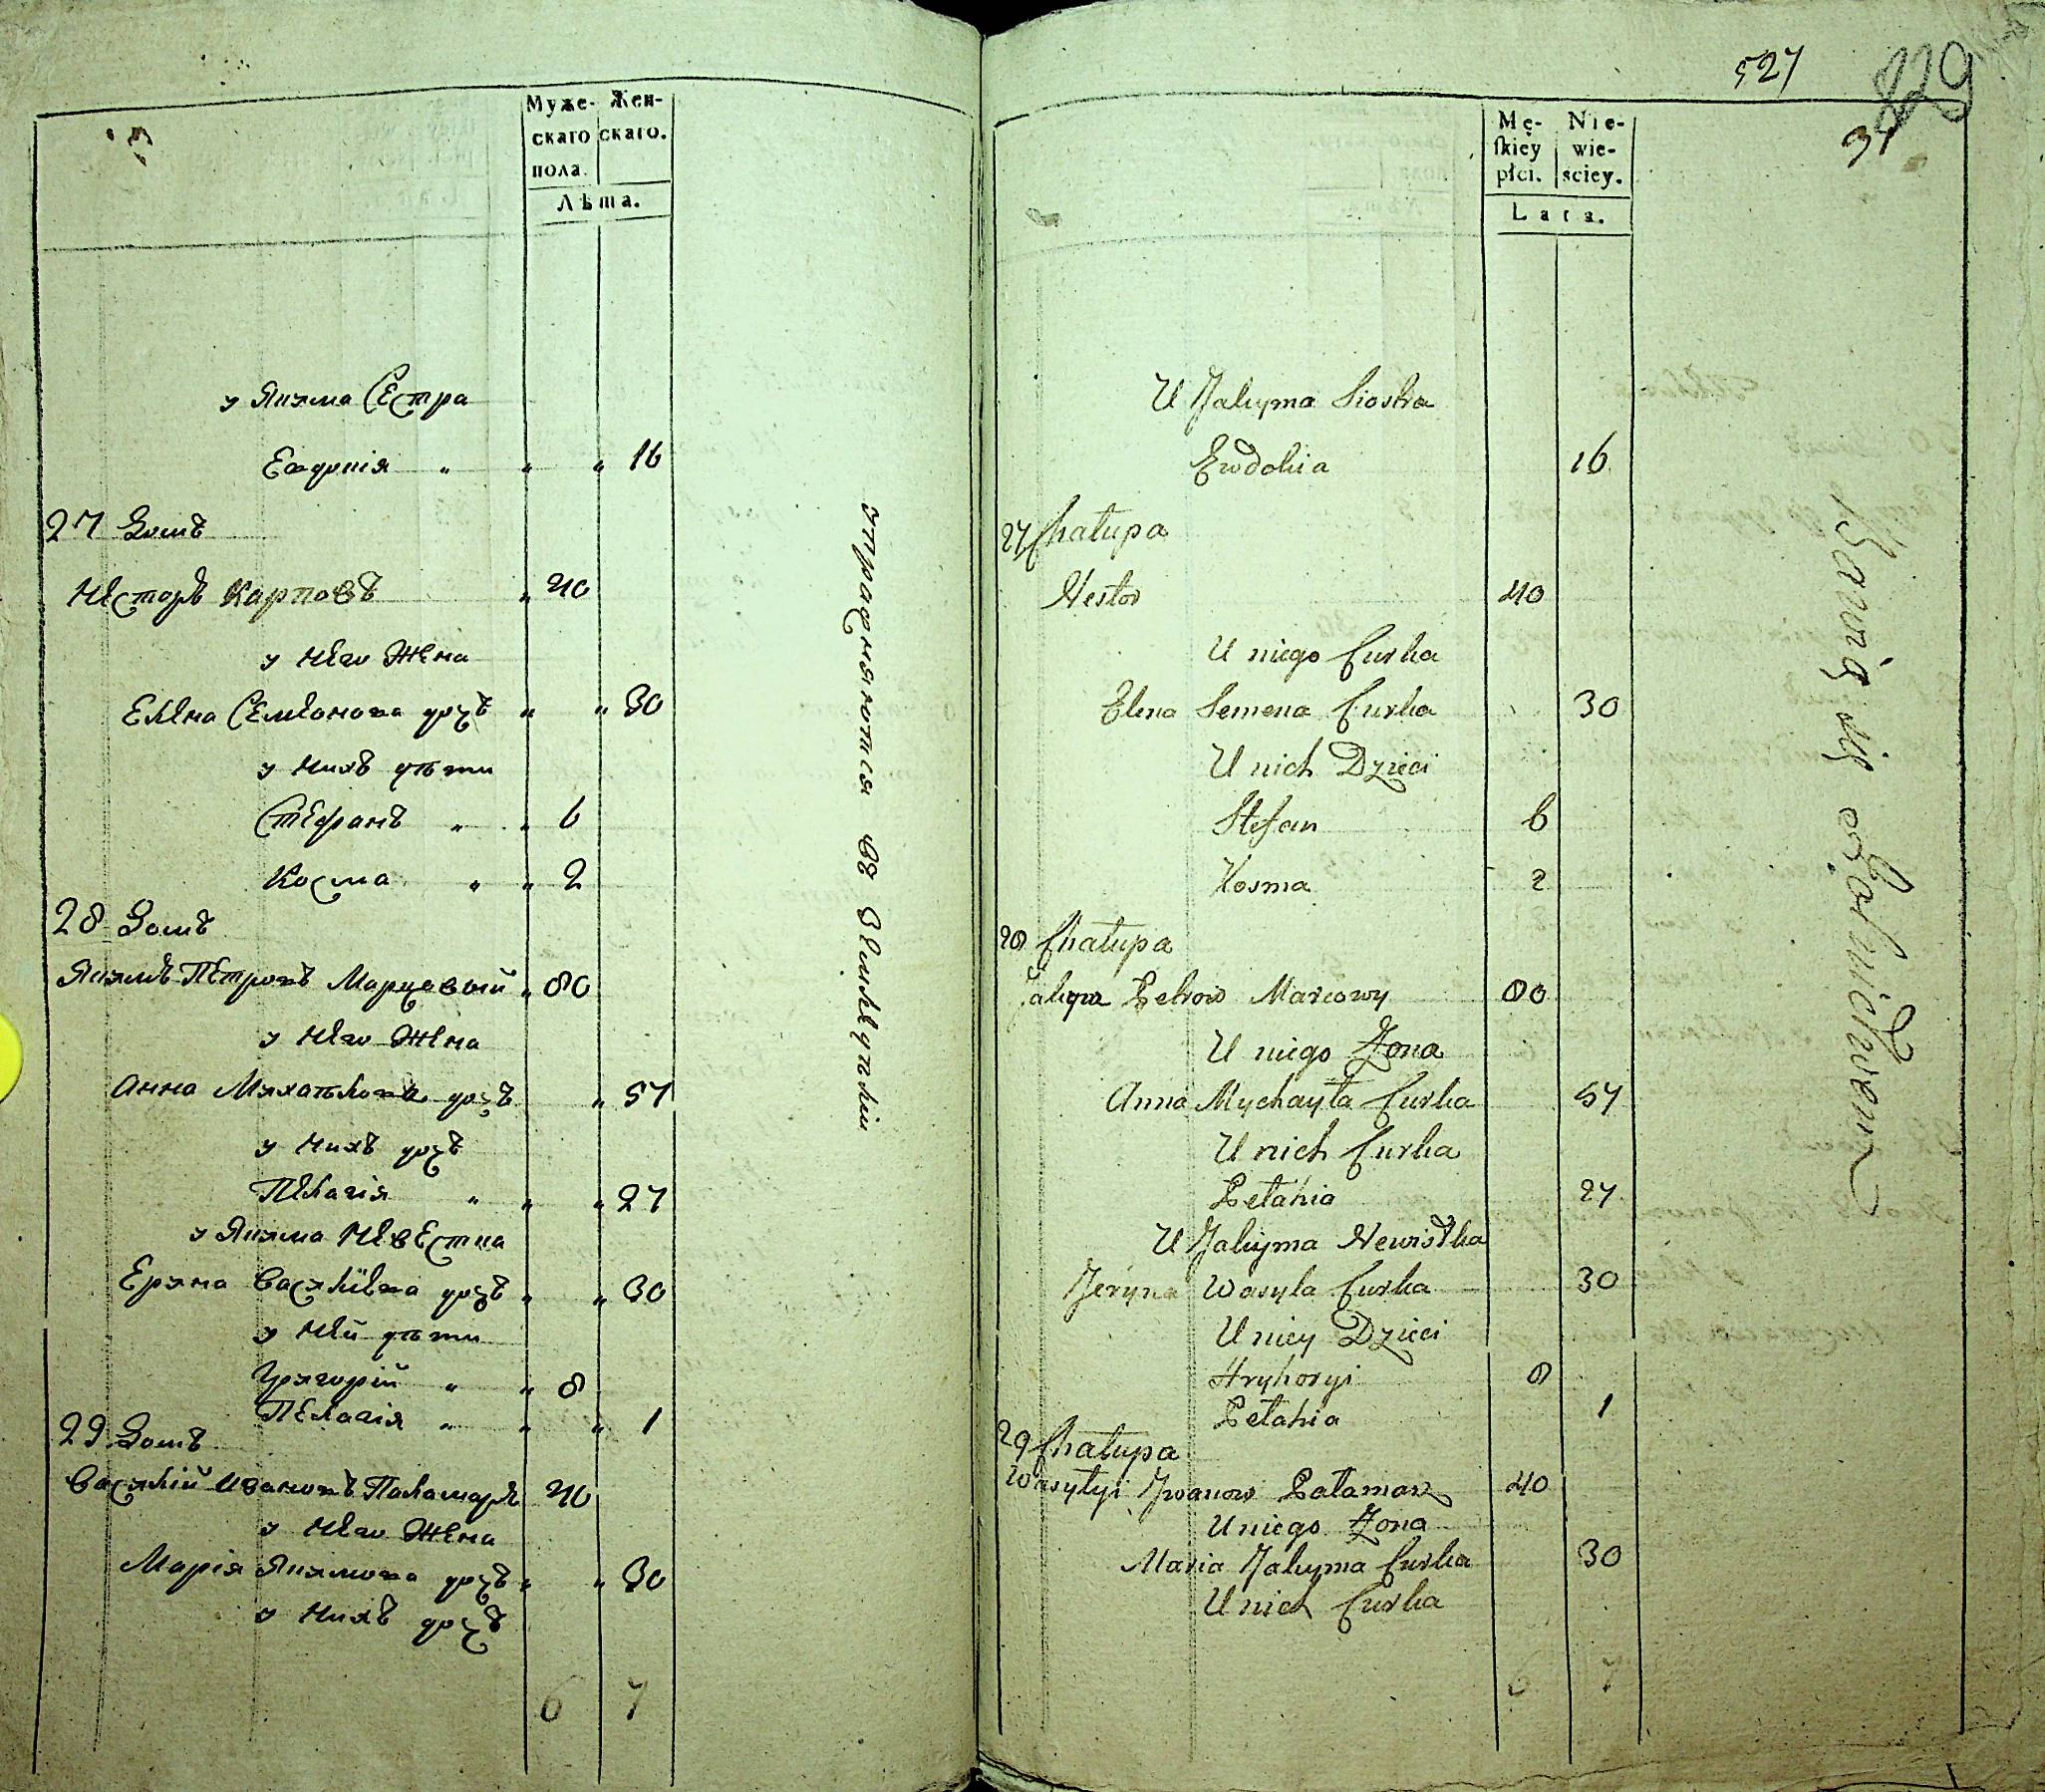 Муже- Жен-
скаго скаго.
пола.
Лѣта.
у Якима Сестра
Евдокія " " " 16
27 Домъ
Несторъ Карповъ " 40
у Него Жена
Елена Семионова дочъ " " 30
у Нихъ дѣти
Стефанъ " " 6
Косма " " 2
28 Домъ
Якимъ Петровъ Марцовый " 80
у Него Жена
Анна Михайлова дочъ " 57
у Нихъ дочъ
Пелагія " " " 27
у Якима Невестка
Ерина Василіева дочъ " " 30
у Ней дѣти
Григорій " " 8
Пелагія " " " 1
29 Домъ
Василій Ивановъ Паламаръ 40
у Него Жена
Марія Якимова дочъ " " 30
у Нихъ дочъ
6 7
упражняются въ Земледѣліи
527
229
31
Mę- Nie-
ſkiey wie-
płci. sciey.
Lata.
U Jakyma Siostra
Ewdokia 16
27 Chałupa
Nestor 40
U niego Curka
Elena Semena Curka 30
U nich Dzieci
Stefan 6
Kosma 2
28 Chałupa
Jakym Petrow Marcowy 80
U niego Zona
Anna Mychayła Curka 57
U nich Curka
Pełahia 27
U Jakyma Newistka
Jeryna Wasyla Curka 30
U niey Dzieci
Hryhoryi 8
Pełahia 1
29 Chałupa
Wasyłyi Jwanow Pałamar 40
U niego Zona
Maria Jakyma Curka 30
U nich Curka
6 7
Bawią się Rolnictwem